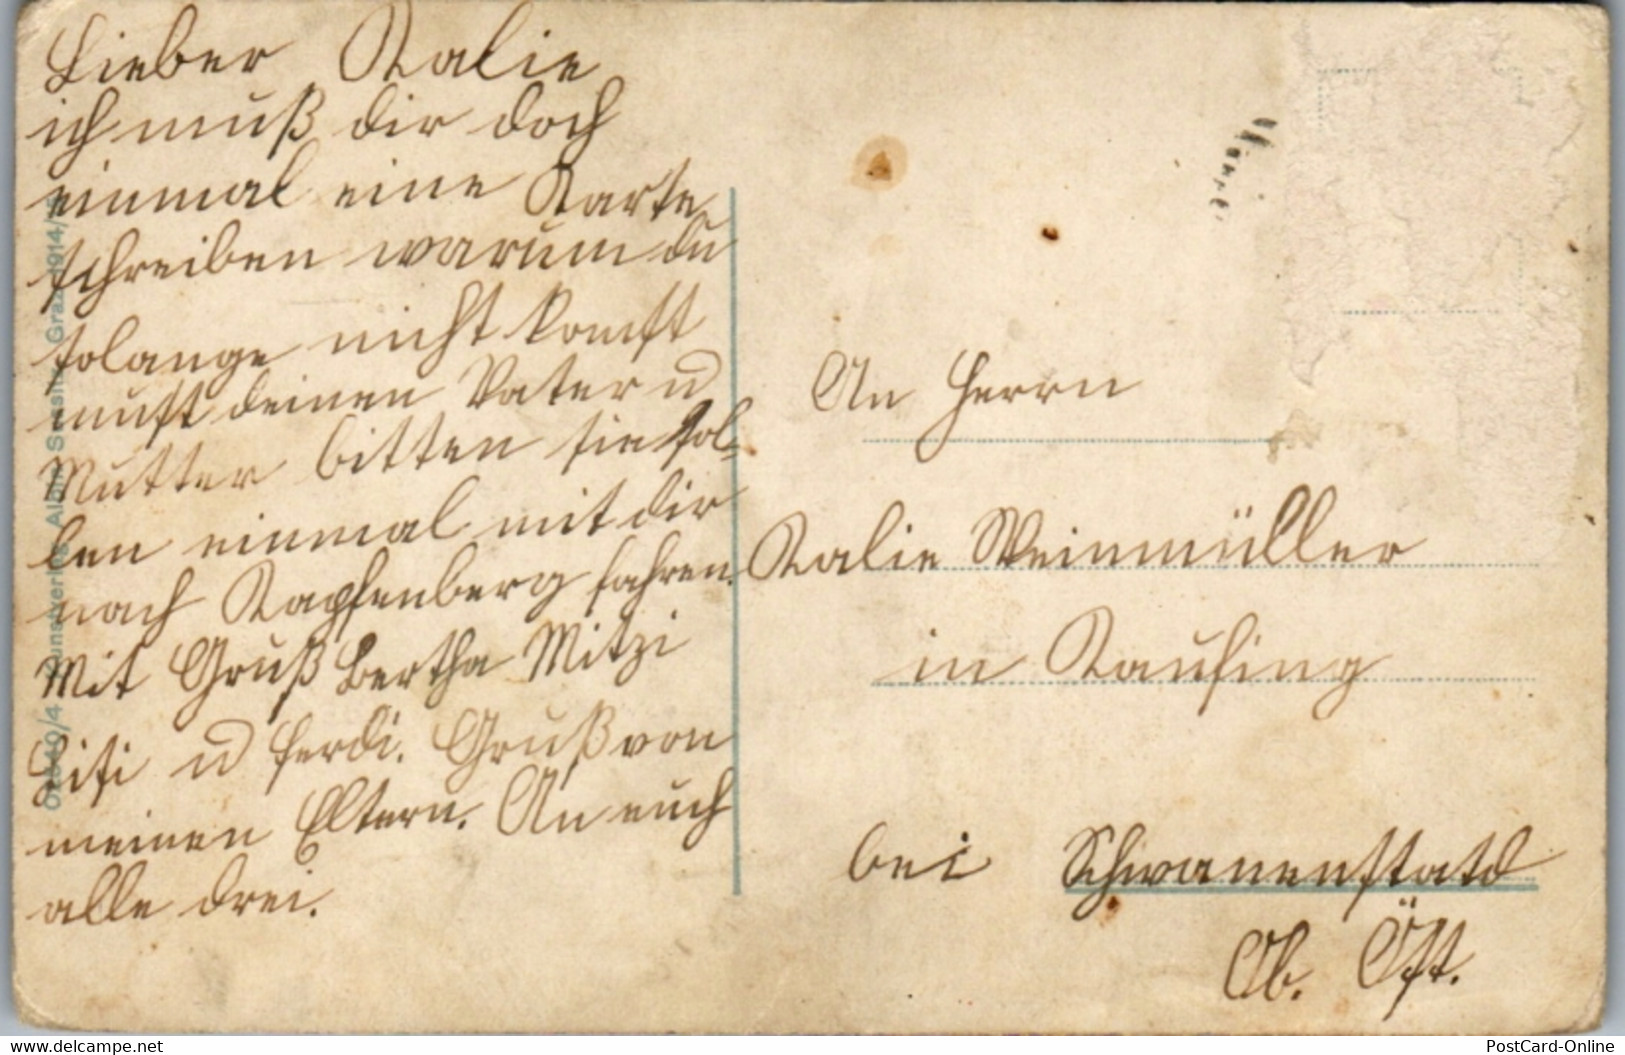 Lieber Kalie
ich muß dir doch
einmal eine Karte
schreiben warum du
solange nicht komst
must deinen Vater u
Mutter bitten sie sol-
len einmal mit dir
nach Kapfenberg fahren.
Mit Gruß Bertha Mitzi
Lisi u Ferdi. Gruß von
meinen Eltern. An euch
alle drei.
An Herrn
Kalie Weinmüller
in Kaufing
bei Schwanenstatd
Ob. Öst.
www.delcampe.net
PostCard-Online